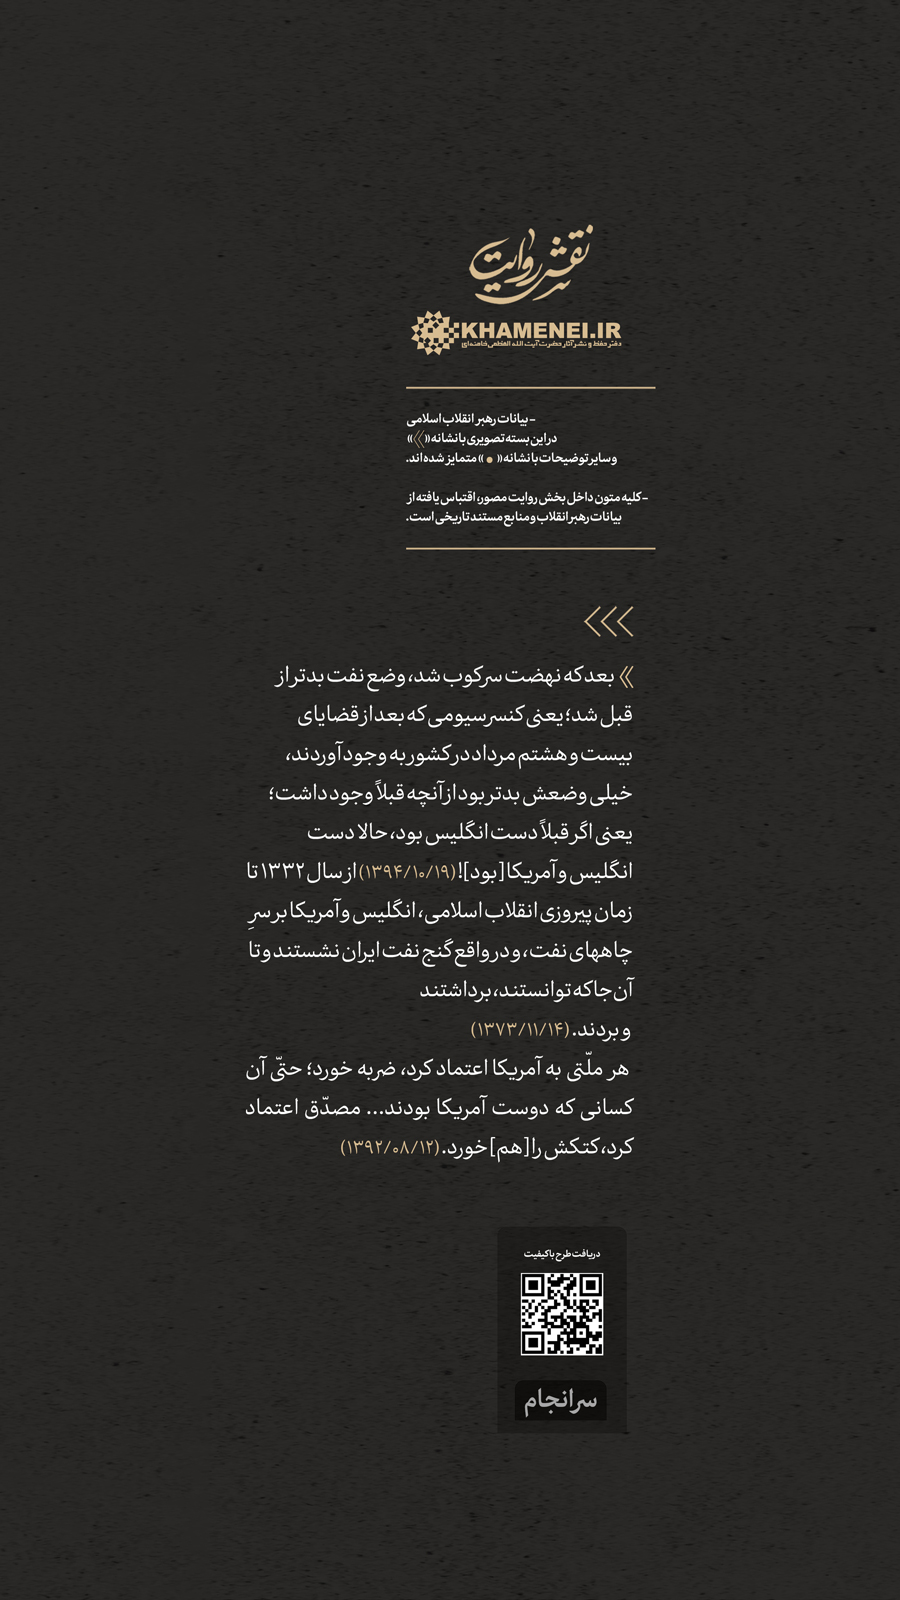 نقش روایت
KHAMENEI.IR
دفتر حفظ و نشر آثار حضرت آیت الله العظمی خامنه‌ای
- بیانات رهبر انقلاب اسلامی
در این بسته تصویری با نشانه «»»
و سایر توضیحات با نشانه «●» متمایز شده‌اند.
- کلیه متون داخل بخش روایت مصور، اقتباس یافته از
بیانات رهبر انقلاب و منابع مستند تاریخی است.
» بعد که نهضت سرکوب شد، وضع نفت بدتر از
قبل شد؛ یعنی کنسرسیومی که بعد از قضایای
بیست و هشتم مرداد در کشور به وجود آوردند،
خیلی وضعش بدتر بود از آنچه قبلاً وجود داشت؛
یعنی اگر قبلاً دست انگلیس بود، حالا دست
انگلیس و آمریکا [بود]! (۱۳۹۴/۱۰/۱۹) از سال ۱۳۳۲ تا
زمان پیروزی انقلاب اسلامی، انگلیس و آمریکا بر سرِ
چاههای نفت، و در واقع گنج نفت ایران نشستند و تا
آن جا که توانستند، برداشتند
و بردند. (۱۳۷۳/۱۱/۱۴)
هر ملّتی به آمریکا اعتماد کرد، ضربه خورد؛ حتّی آن
کسانی که دوست آمریکا بودند... مصدّق اعتماد
کرد، کتکش را [هم] خورد. (۱۳۹۲/۰۸/۱۲)
دریافت طرح باکیفیت
سرانجام